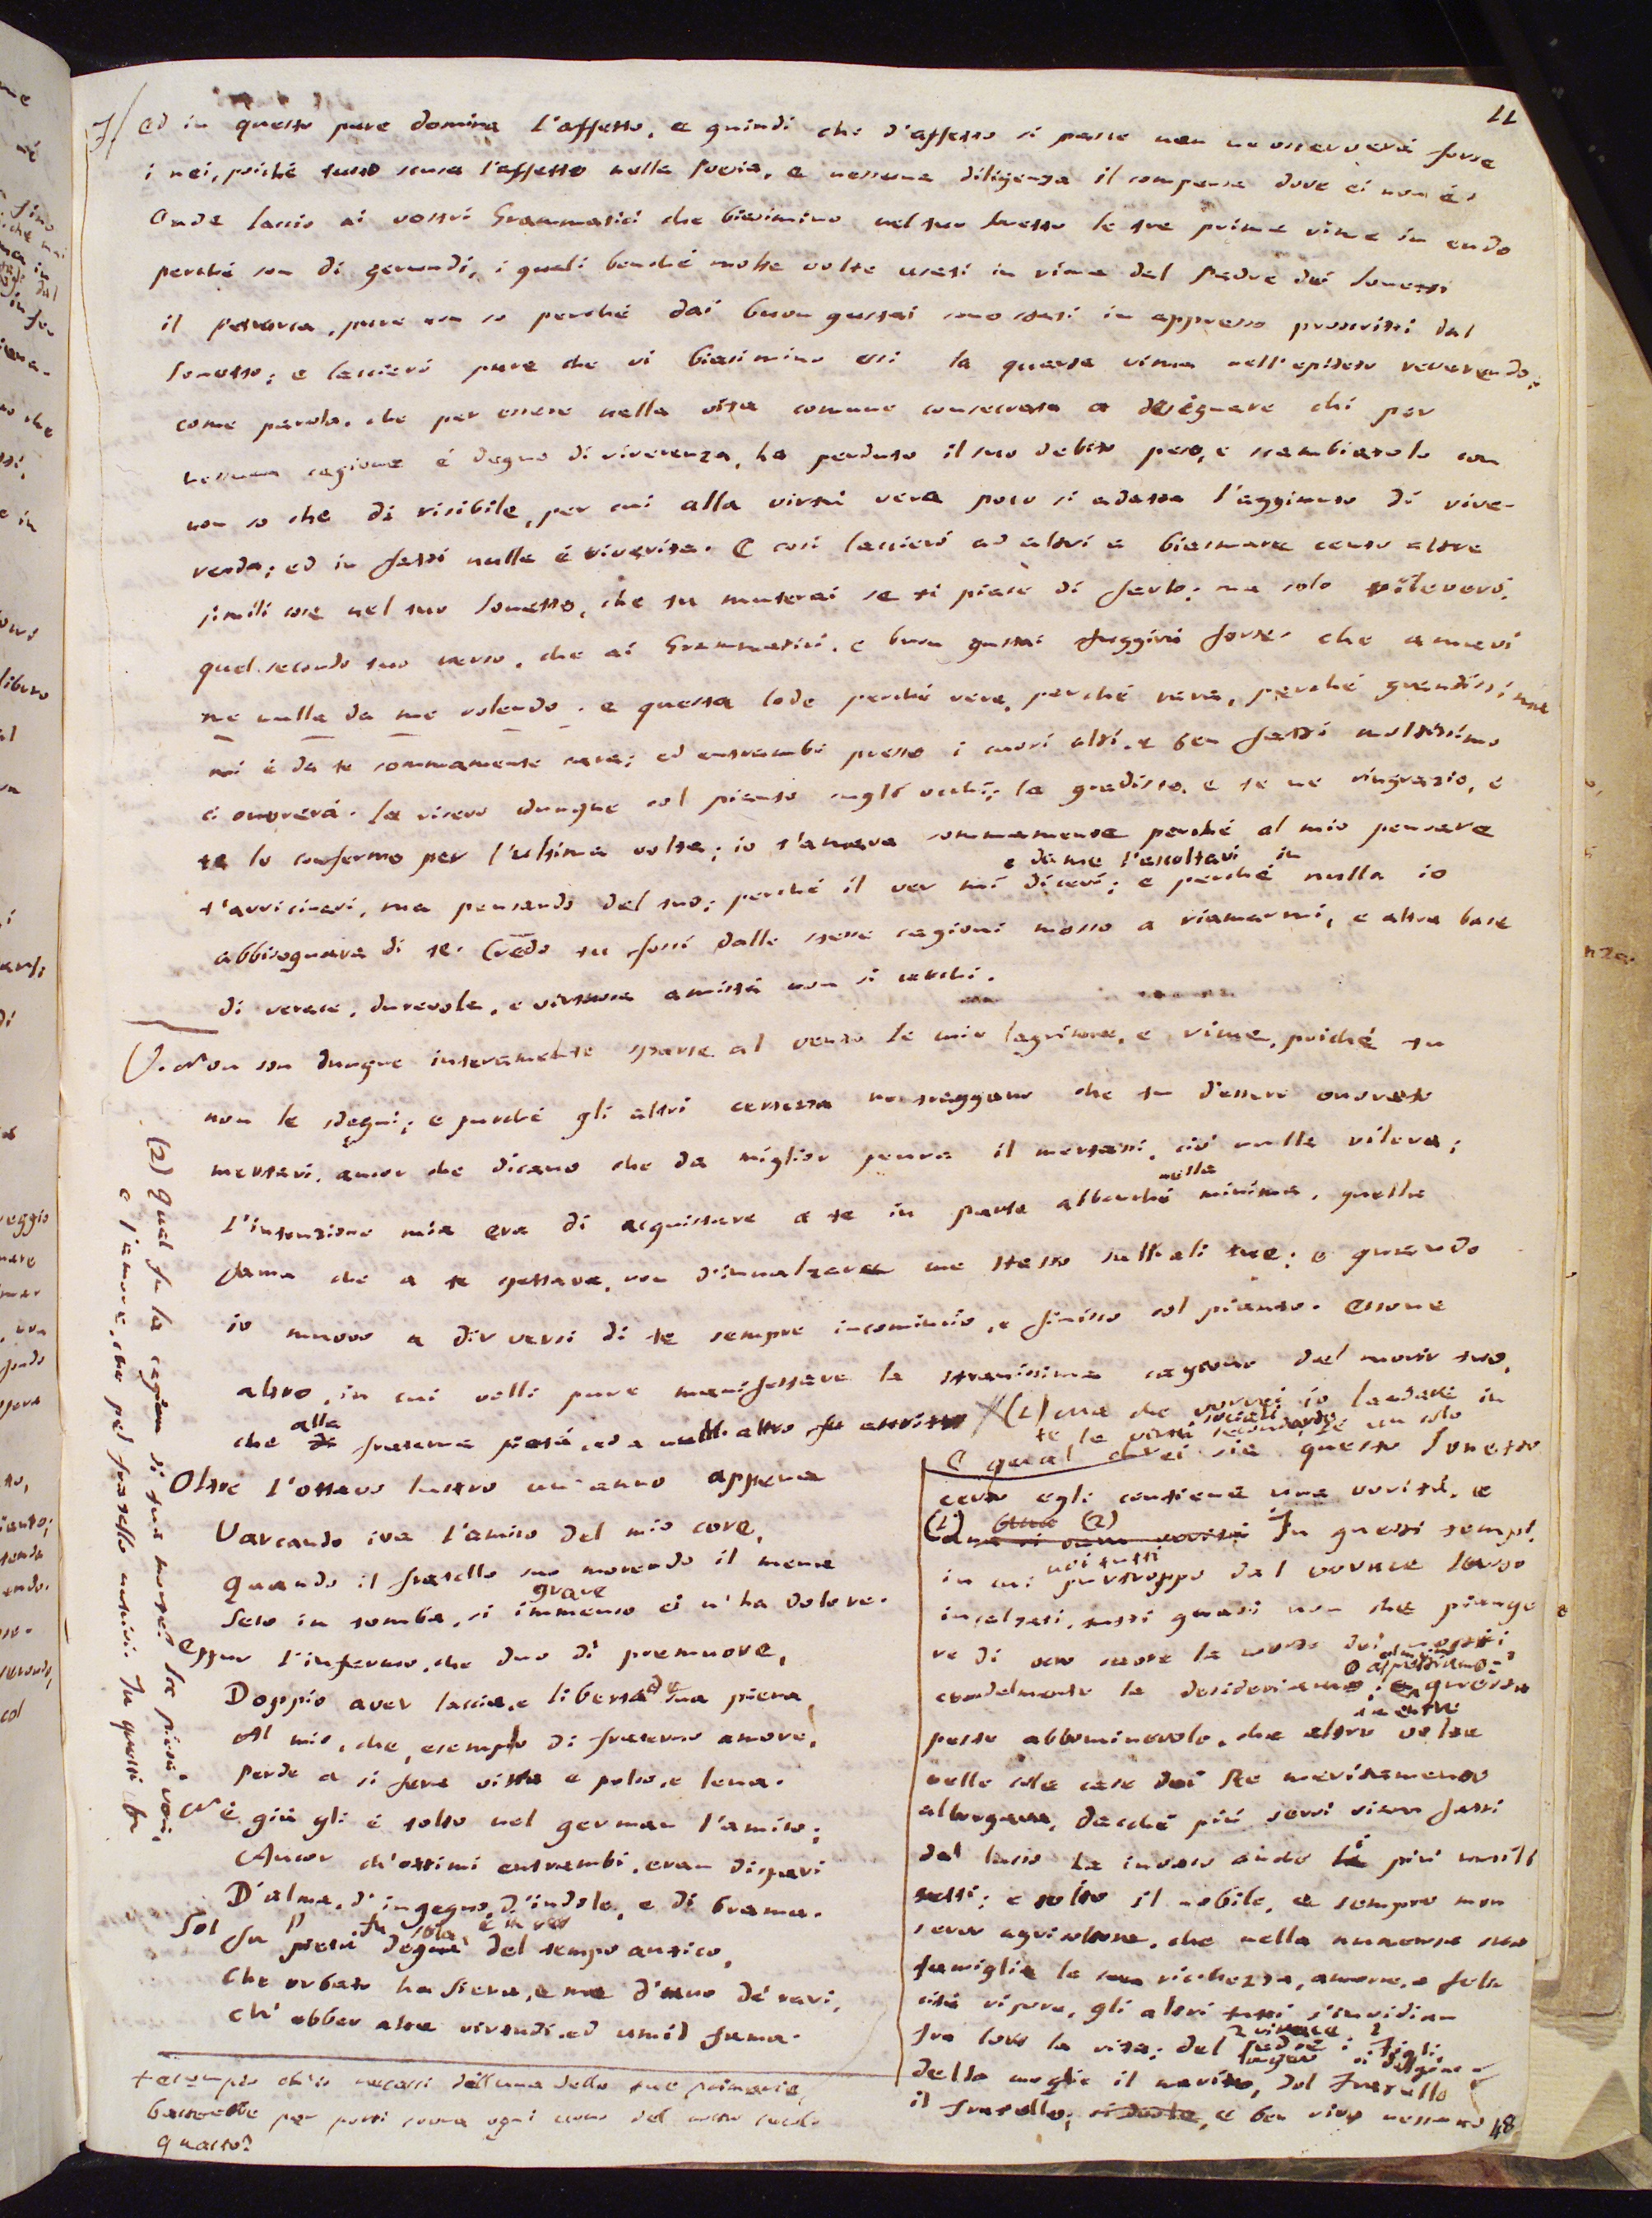 11
F/ Ed in questo pure domina l'affetto, e quindi chi d'affetto si pasce non ne osserverà forse
i nei, poiché tutto scusa l'affetto nella Poesia, e nessuna diligenza il compensa dove ei non è.
Onde lascio ai vostri Grammatici che biasimino nel tuo Sonetto le tre prime rime in endo
perché son di gerundi, i quali benché molte volte usati in rima dal Padre dei Sonetti
il Petrarca, pure non so perché dai buon gustai sono stati in appresso proscritti dal
Sonetto; e lascierò pure che vi biasimino essi la quarta rima nell'epiteto reverendo,
come parola, che per essere nella vita comune consecrata a disegnare chi per
nessuna cagione è degno di riverenza, ha perduto il suo debito peso, e scambiatolo con
non so che di risibile, per cui alla virtù vera poco si adatta l'aggiunto di rive-
renda; ed in fatti nulla è riverita. E così lascierò ad altri a biasmare cento altre
simili cose nel tuo Sonetto, che tu muterai se ti piace di farlo; ma solo rileverò,
quel secondo tuo verso, che ai Grammatici, e buon gustai sfuggirà forse, che amavi
me nulla da me volendo. e questa lode perché vera, perché rara, perché grandissima
mi è da te sommamente cara; ed entrambi presso i cuori alti, e ben fatti moltissimo
ci onorerà. La ricevo dunque col pianto sugli occhi; la gradisco, e te ne ringrazio, e
te lo confermo per l'ultima volta; io t'amava sommamente perché al mio pensare
e da me l'ascoltavi in
t'avvicinavi, ma pensando del tuo; perché il ver mi dicevi; e perché nulla io
abbisognava di te. Credo tu fossi dalle stesse cagioni mosso a riamarmi, e altra base
di verace, durevole, e virtuosa amistà non si cerchi.
V. Non son dunque interamente sparse al vento le mie lagrime, e rime, poiché tu
non le sdegni; e purché gli altri certezza ne traggano che tu d'essere onorato
meritavi, ancor che dicano che da miglior penna il meritassi, ciò nulla rileva;
molto
L'intenzione mia era di acquistare a te in parte abbenché minima, quella
fama che a te spettava, non d'innalzare me stesso sull'ali tue; e quando
io muovo a dir versi di te sempre incomincio, e finisco col pianto. Eccone
altro, in cui volli pure manifestare la stranissima cagione del morir tuo,
alla
che di fraterna pietà, ed a null'altro fu ascritto (1) ma che vorrei io laudare in
te le virtù sociali secondarie un solo
Oltre l'ottavo lustro un'anno appena
Varcando iva l'amico del mio core,
Quando il fratello suo morendo il mena
grave
Seco in tomba, sì immenso ei n'ha dolore.
Eppur l'infermo, che duo dì premuore,
Doppio aver lascia, e libertade sua piena
Al mio, che, esempio di fraterno amore,
Perde a sì fera vista e polso, e lena.
Nè già gli è tolto nel german l'amico;
Ancor ch'ottimi entrambi, eran dispari
D'alma, d'ingegno, d'indole, e di brama.
Sol fu sola, e in ver
Fu pietà degna del tempo antico,
Che orbato ha Siena, e me d'uno dei rari,
Ch'ebber alte virtudi, ed umil fama.
E qual ei sia questo Sonetto
certo egli contiene una verità, e
(1) (2) In questi tempi
noi tutti
in cui purtroppo dal vorace lusso
incalzati, tutti quasi non che piange
re di vero cuore la morte dei nostri
o almeno aspettiamo;
crudelmente la desideriamo; e questa
mentre
peste abbominevole, che altre volte
nelle sole case dei Re meritamente
albergava, dacché più servi siam fatti
dal lusso ha invaso anche i più umili
tetti; e tolto il nobile, e sempre men
servo agricoltore, che nella numerosa sua
famiglia la sua ricchezza, amore, e feli
cità ripone, gli altri tutti s'invidian
fra loro la vita; del padre i figli,
della moglie il marito, del fratello
il fratello; si duole, e ben vive nessuno
(2) Qual fu la cagion di tua morte? Se pietà vera,
e l'amore, che pel fratello nutrivi. In questi tr
+ esempio ch'io necassi dell'una delle tue primarie,
basterebbe per porti sovra ogni uomo del nostro secolo
quarto?
48